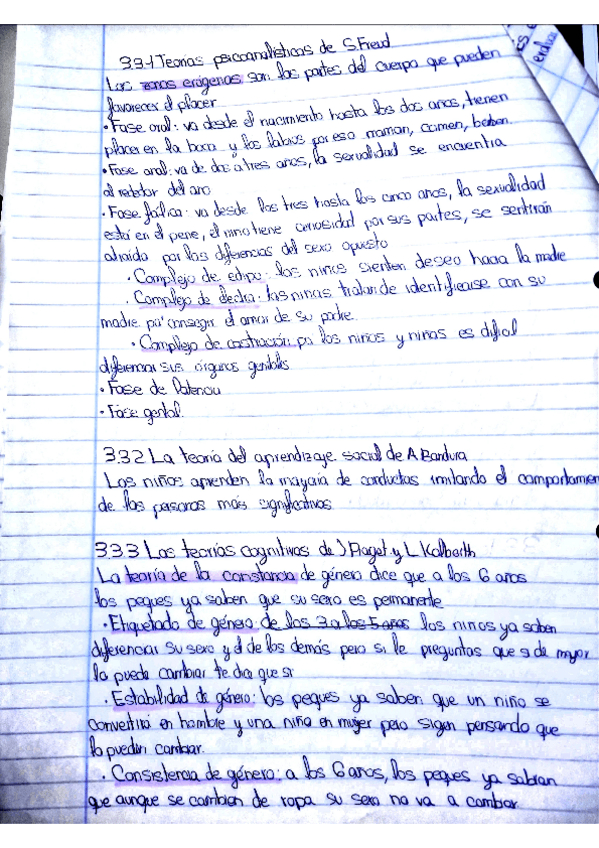 3.3.1 Teorías psicoanalísticas de S.Freud
Las zonas erógenas son las partes del cuerpo que pueden
favorecer el placer
· Fase oral: va desde el nacimiento hasta los dos años, tienen
placer en la boca y los labios por eso maman, comen, beben.
· Fase anal: va de dos a tres años, la sexualidad se encuentra
al rededor del ano
· Fase fálica: va desde los tres hasta los cinco años, la sexualidad
está en el pene, el niño tiene curiosidad por sus partes, se sentirán
atraído por las diferencias del sexo opuesto
· Complejo de edipo: los niños sienten deseo hacia la madre
· Complejo de electra: las niñas tratan de identificarse con su
madre pa' conseguir el amor de su padre.
· Complejo de castración: pa los niños y niñas es difícil
diferenciar sus órganos genitales
· Fase de latencia
· Fase genital.
3.3.2 La teoría del aprendizaje social de A.Bandura
Los niños aprenden la mayoría de conductas imitando el comportamien
de las personas más significativas
3.3.3 Las teorías cognitivas de J Piaget y L Kolberth
La teoría de la constancia de género dice que a los 6 años
los peques ya saben que su sexo es permanente
· Etiquetado de género de los 3 a los 5 años los niños ya saben
diferenciar su sexo y el de los demás pero si le preguntas que si de mayor
lo puede cambiar te dira que si
· Estabilidad de género: los peques ya saben que un niño se
convertirá en hombre y una niña en mujer pero siguen pensando que
lo pueden cambiar.
· Consistencia de género: a los 6 años, los peques ya sabran
que aunque se cambien de ropa su sexo no va a cambiar